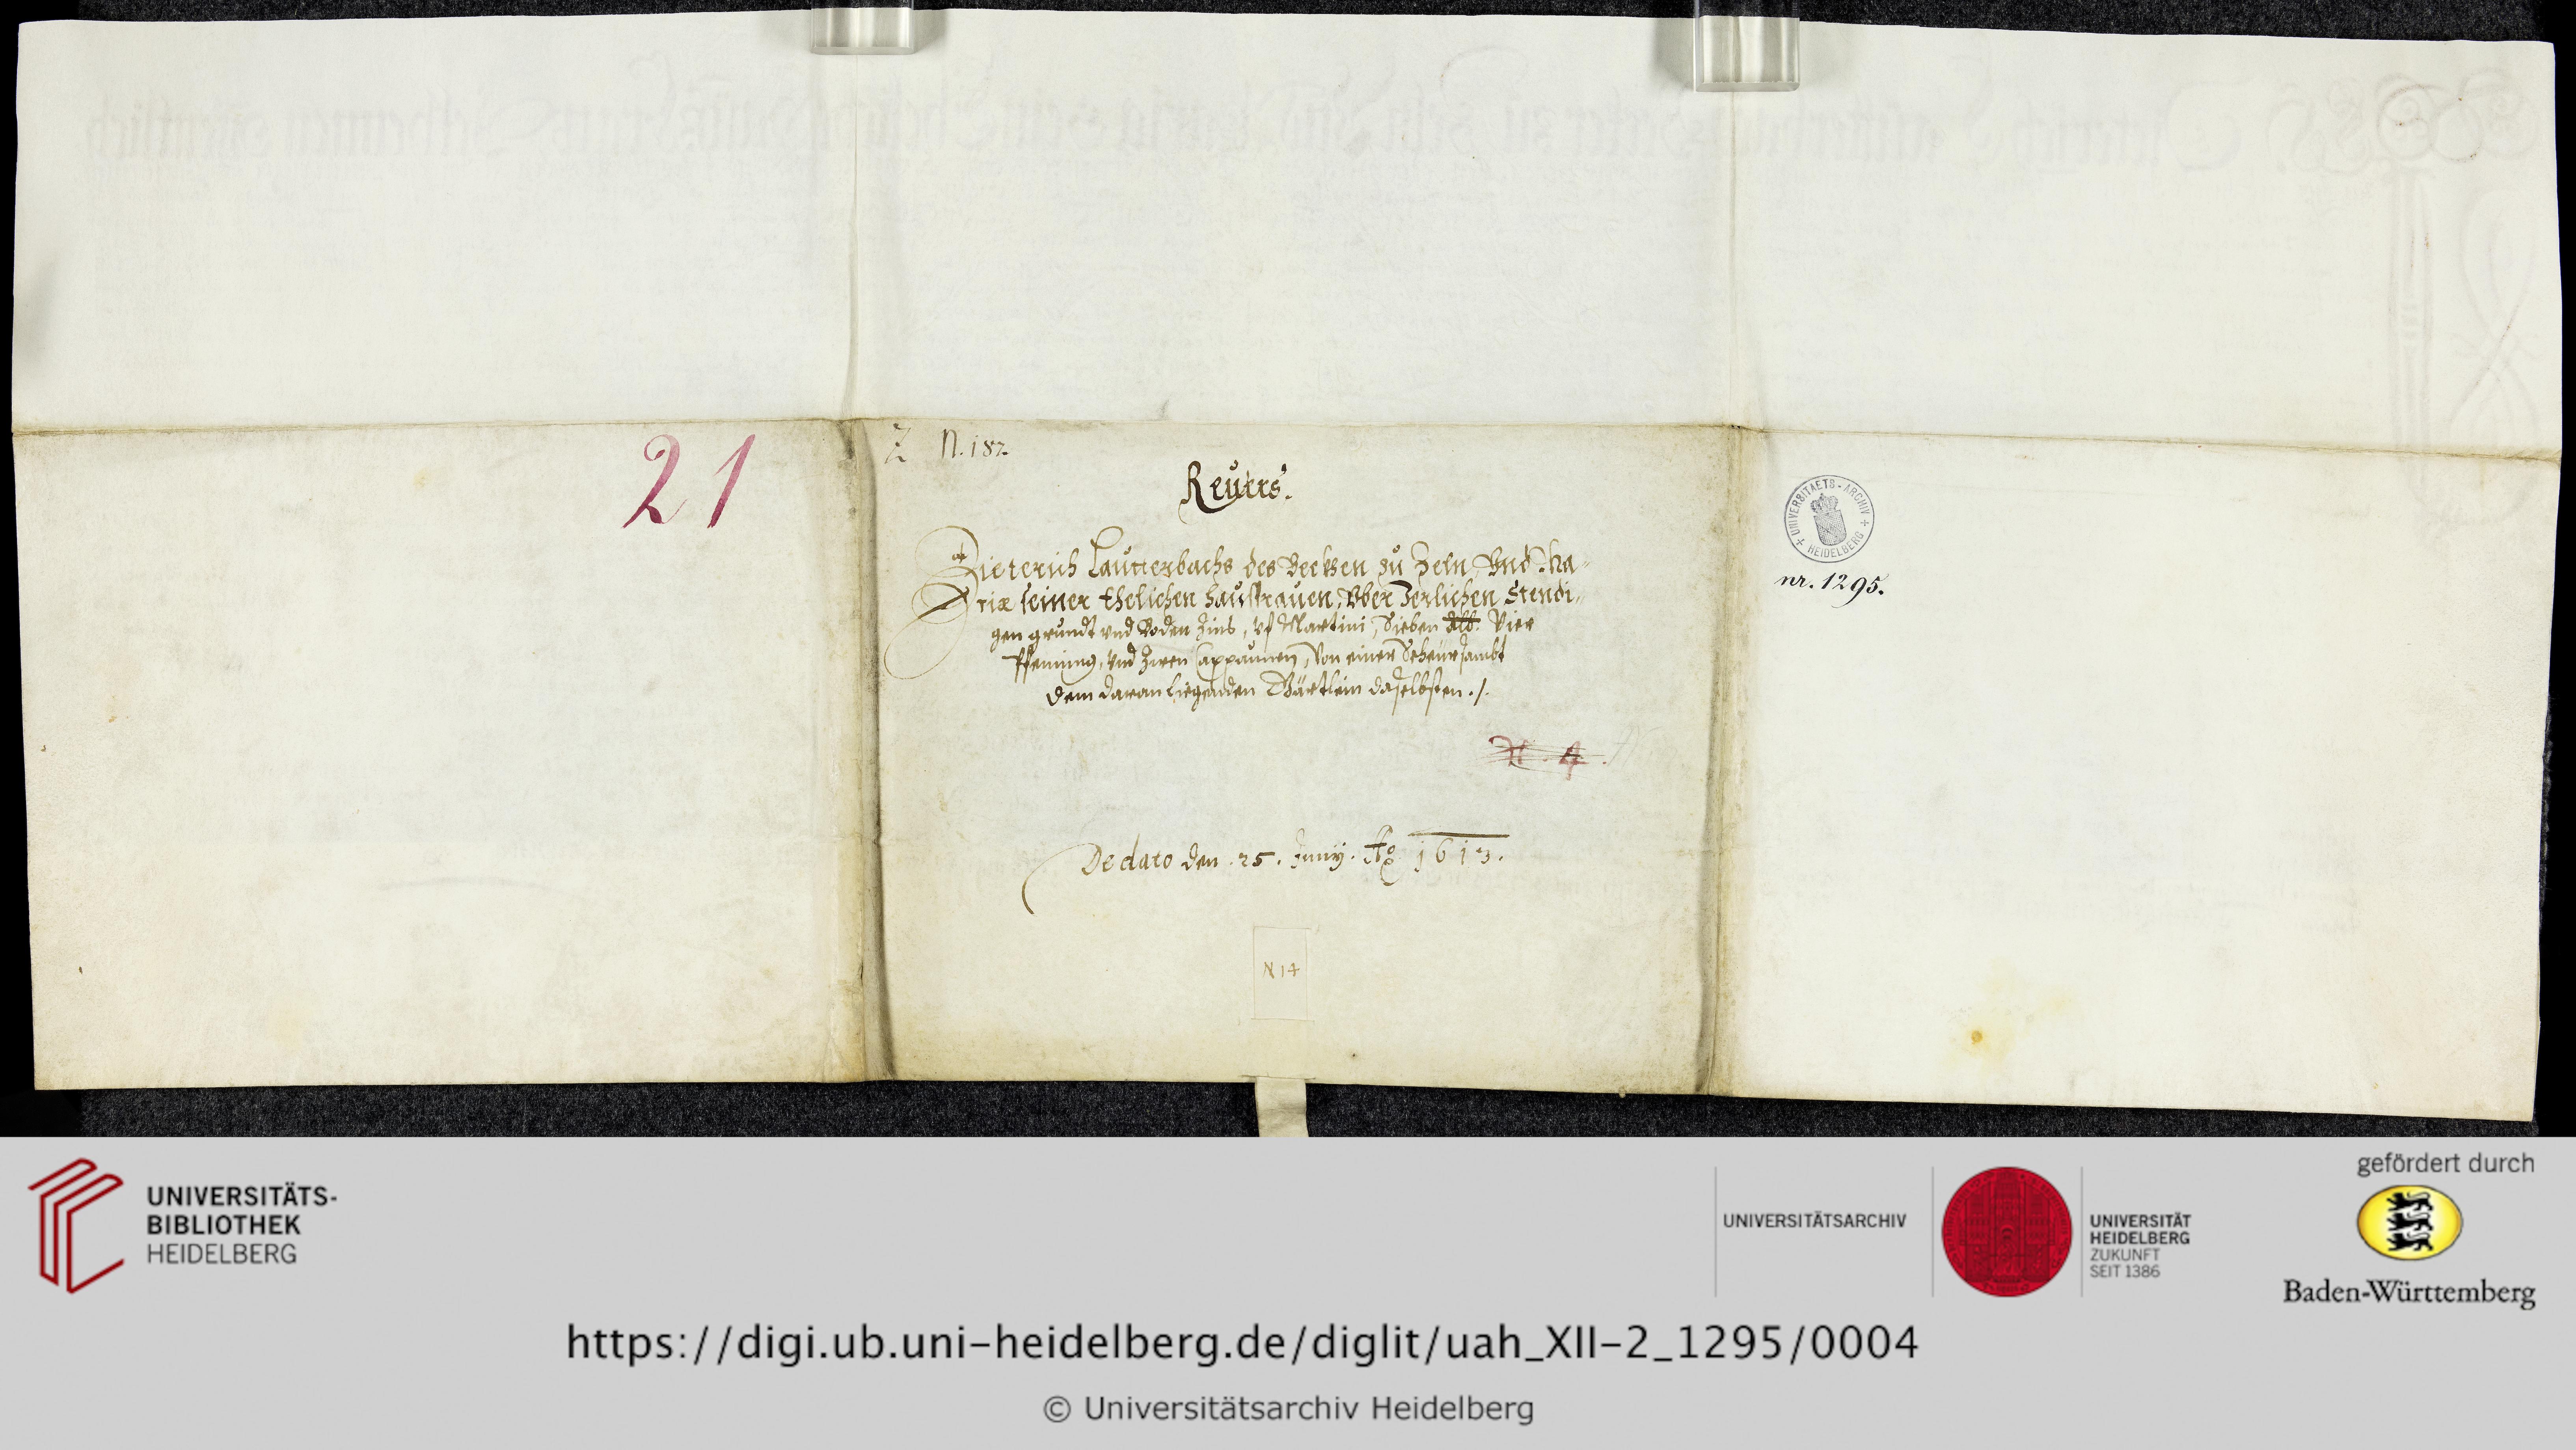 21
Z N. 187.
Reuers.
Dieterich Lautterbachs des Becken zu Zeln, Vnd Ma-
riæ seiner Ehelichen haußfrauen, Vber Jerlichen Stendi-
gen grundt vnd Boden Zins, vf Martini, Sieben Alb. Vier
Pfenning, vnd Zween Cappaunen, Von einer Scheür sambt
dem daran liegenden Gärtlein daselbsten ./.
N. 4.
De dato den 25. Junij. Ao 1613.
N 14
UNIVERSITAETS-ARCHIV
HEIDELBERG
nr. 1295.
UNIVERSITÄTS-
BIBLIOTHEK
HEIDELBERG
UNIVERSITÄTSARCHIV
UNIVERSITÄT
HEIDELBERG
ZUKUNFT
SEIT 1386
gefördert durch
Baden-Württemberg
https://digi.ub.uni-heidelberg.de/diglit/uah_XII-2_1295/0004
© Universitätsarchiv Heidelberg